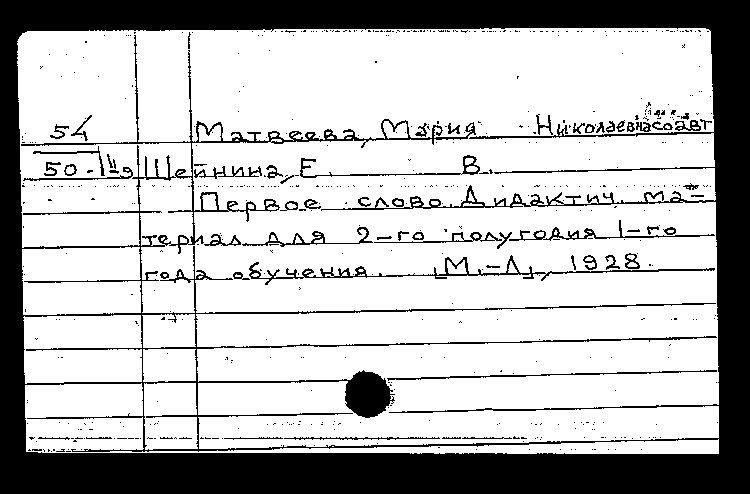 54 Матвеева, Мария Николаевна соавт
50-III9 Шейнина, Е. В.
Первое слово. Дидактич. ма-
териал для 2-го полугодия 1-го
года обучения. [М.-Л], 1928.